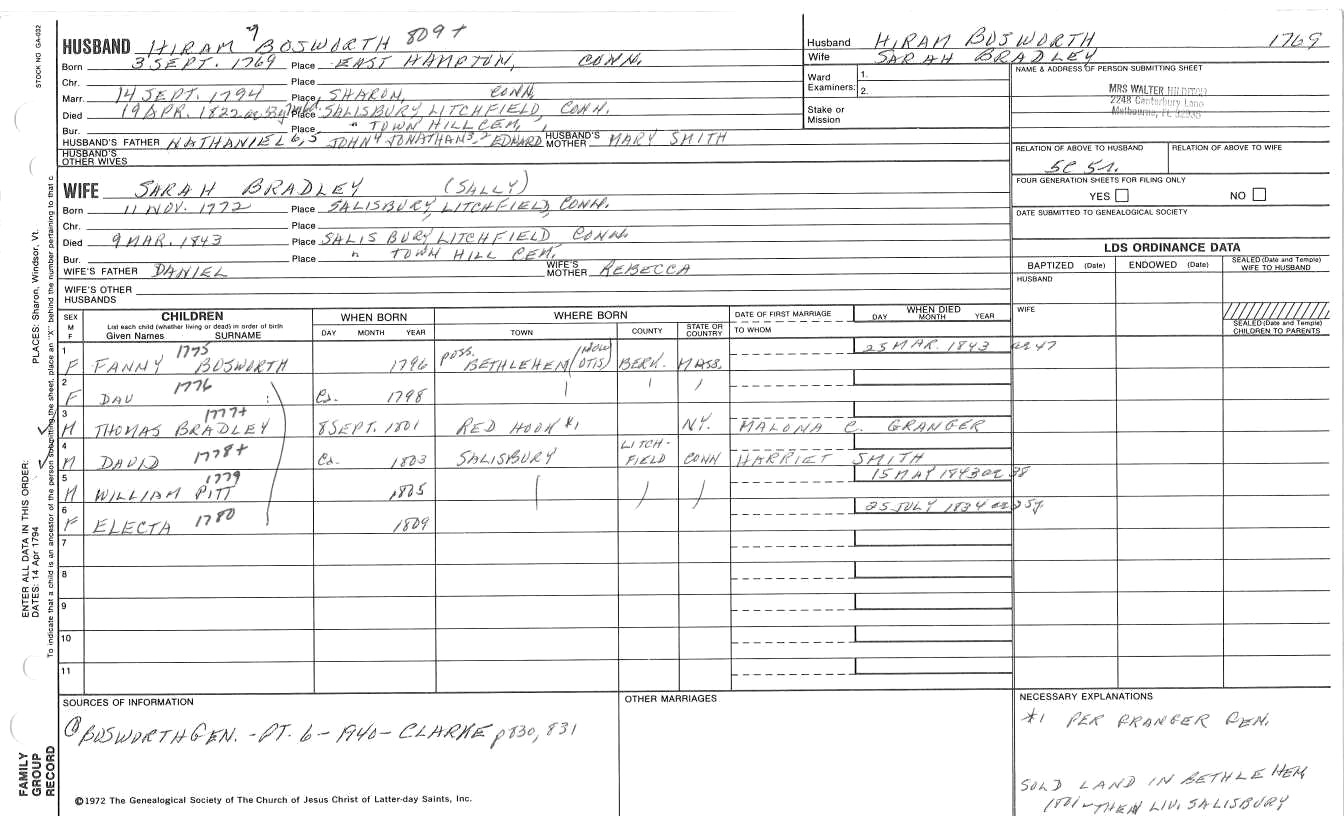 STOCK NO GA-032
HUSBAND HIRAM 7 BOSWORTH 809+
Born 3 SEPT. 1769 Place EAST HAMPTON, CONN.
Chr. Place
Marr. 14 SEPT. 1794 Place, SHARON, CONN
Died 19 APR. 1822 Place SALISBURY LITCHFIELD, CONN.
Bur. Place " TOWN HILL CEM,
HUSBAND'S FATHER NATHANIEL 6,5 JOHN 4 JONATHAN 3,2 EDWARD HUSBAND'S MOTHER MARY SMITH
HUSBAND'S OTHER WIVES
WIFE SARAH BRADLEY (SALLY)
Born 11 NOV. 1772 Place SALISBURY, LITCHFIELD, CONN.
Chr. Place
Died 9 MAR. 1843 Place SALISBURY LITCHFIELD CONN.
Bur. Place " TOWN HILL CEM.
WIFE'S FATHER DANIEL WIFE'S MOTHER REBECCA
WIFE'S OTHER HUSBANDS
Husband HIRAM BOSWORTH 1769
Wife SARAH BRADLEY
Ward Examiners: 1. 2.
Stake or Mission
NAME & ADDRESS OF PERSON SUBMITTING SHEET
MRS WALTER
2248 Canterbury Lane
Melbourne, FL 32935
RELATION OF ABOVE TO HUSBAND RELATION OF ABOVE TO WIFE
FOUR GENERATION SHEETS FOR FILING ONLY
YES NO
DATE SUBMITTED TO GENEALOGICAL SOCIETY
LDS ORDINANCE DATA
BAPTIZED (Date) ENDOWED (Date) SEALED (Date and Temple) WIFE TO HUSBAND
HUSBAND
WIFE
SEALED (Date and Temple) CHILDREN TO PARENTS
SEX M F CHILDREN List each child (whether living or dead) in order of birth Given Names SURNAME WHEN BORN DAY MONTH YEAR WHERE BORN TOWN COUNTY STATE OR COUNTRY DATE OF FIRST MARRIAGE TO WHOM WHEN DIED DAY MONTH YEAR
1 F FANNY 1775 BOSWORTH 1796 POSS. BETHLEHEM (NOW OTIS) BERK. MASS. 25 MAR. 1843 ae 47
2 F DAU 1776 Ca. 1798
3 M THOMAS BRADLEY 1777+ 8 SEPT. 1801 RED HOOK *1 N.Y. MALONA C. GRANGER
4 M DAVID 1778+ Ca. 1803 SALISBURY LITCH-FIELD CONN HARRIET SMITH
5 M WILLIAM PITT 1779 1805 15 MAY 1843 ae 38
6 F ELECTA 1780 1809 25 JULY 1834 ae 25y
7
8
9
10
11
PLACES: Sharon, Windsor, Vt.
ENTER ALL DATA IN THIS ORDER:
DATES: 14 Apr 1794
To indicate that a child is an ancestor of the person submitting the sheet, place an "X" behind the number pertaining to that c
SOURCES OF INFORMATION
BOSWORTH GEN. - PT. 6 - 1940 - CLARKE p830, 831
OTHER MARRIAGES
NECESSARY EXPLANATIONS
*1 PER GRANGER GEN.
SOLD LAND IN BETHLEHEM
1801 - THEN LIV. SALISBURY
FAMILY GROUP RECORD
©1972 The Genealogical Society of The Church of Jesus Christ of Latter-day Saints, Inc.